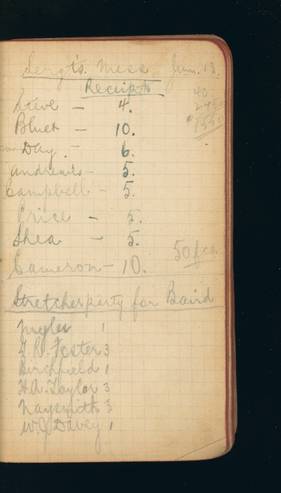 Sergt's. Mess. Jun. 13.
Receipts
40
Steve - 4.
Bluett - 10.
Day. - 6.
Andrews - 5.
Campbell - 5.
Price - 5.
Shea - 5.
50 f ea.
Cameron - 10.
Stretcher party for Baird
1
G. R. Foster 3
Birchfield 1
H. A. Taylor 3
Naysmith 3
W. J. Davey 1